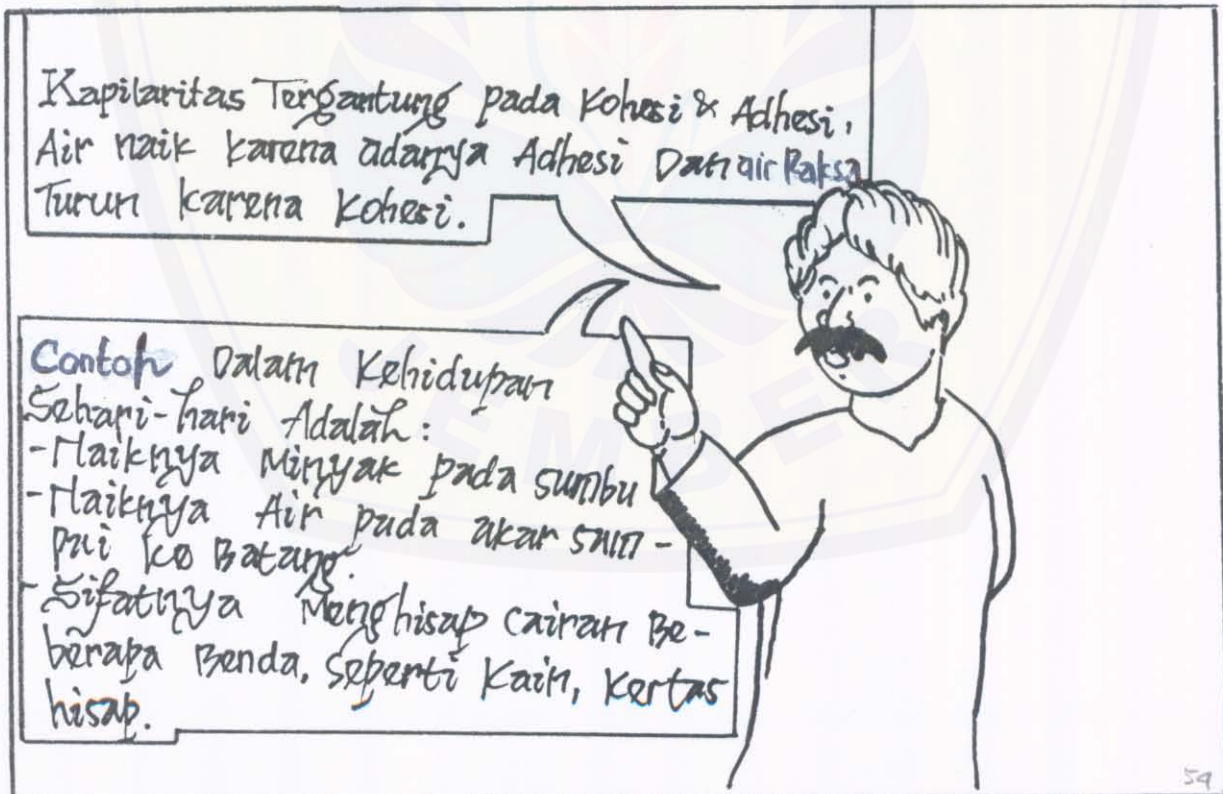 Kapilaritas Tergantung pada Kohesi & Adhesi.
Air naik karena adanya Adhesi Dan air Raksa
Turun karena Kohesi.
Contoh Dalam Kehidupan
Sehari-hari Adalah:
- Naiknya Minyak pada sumbu
- Naiknya Air pada akar sam-
pai ke Batang.
- Sifatnya Menghisap cairan Be-
berapa Benda, seperti Kain, Kertas
hisap.
JEMBER
54